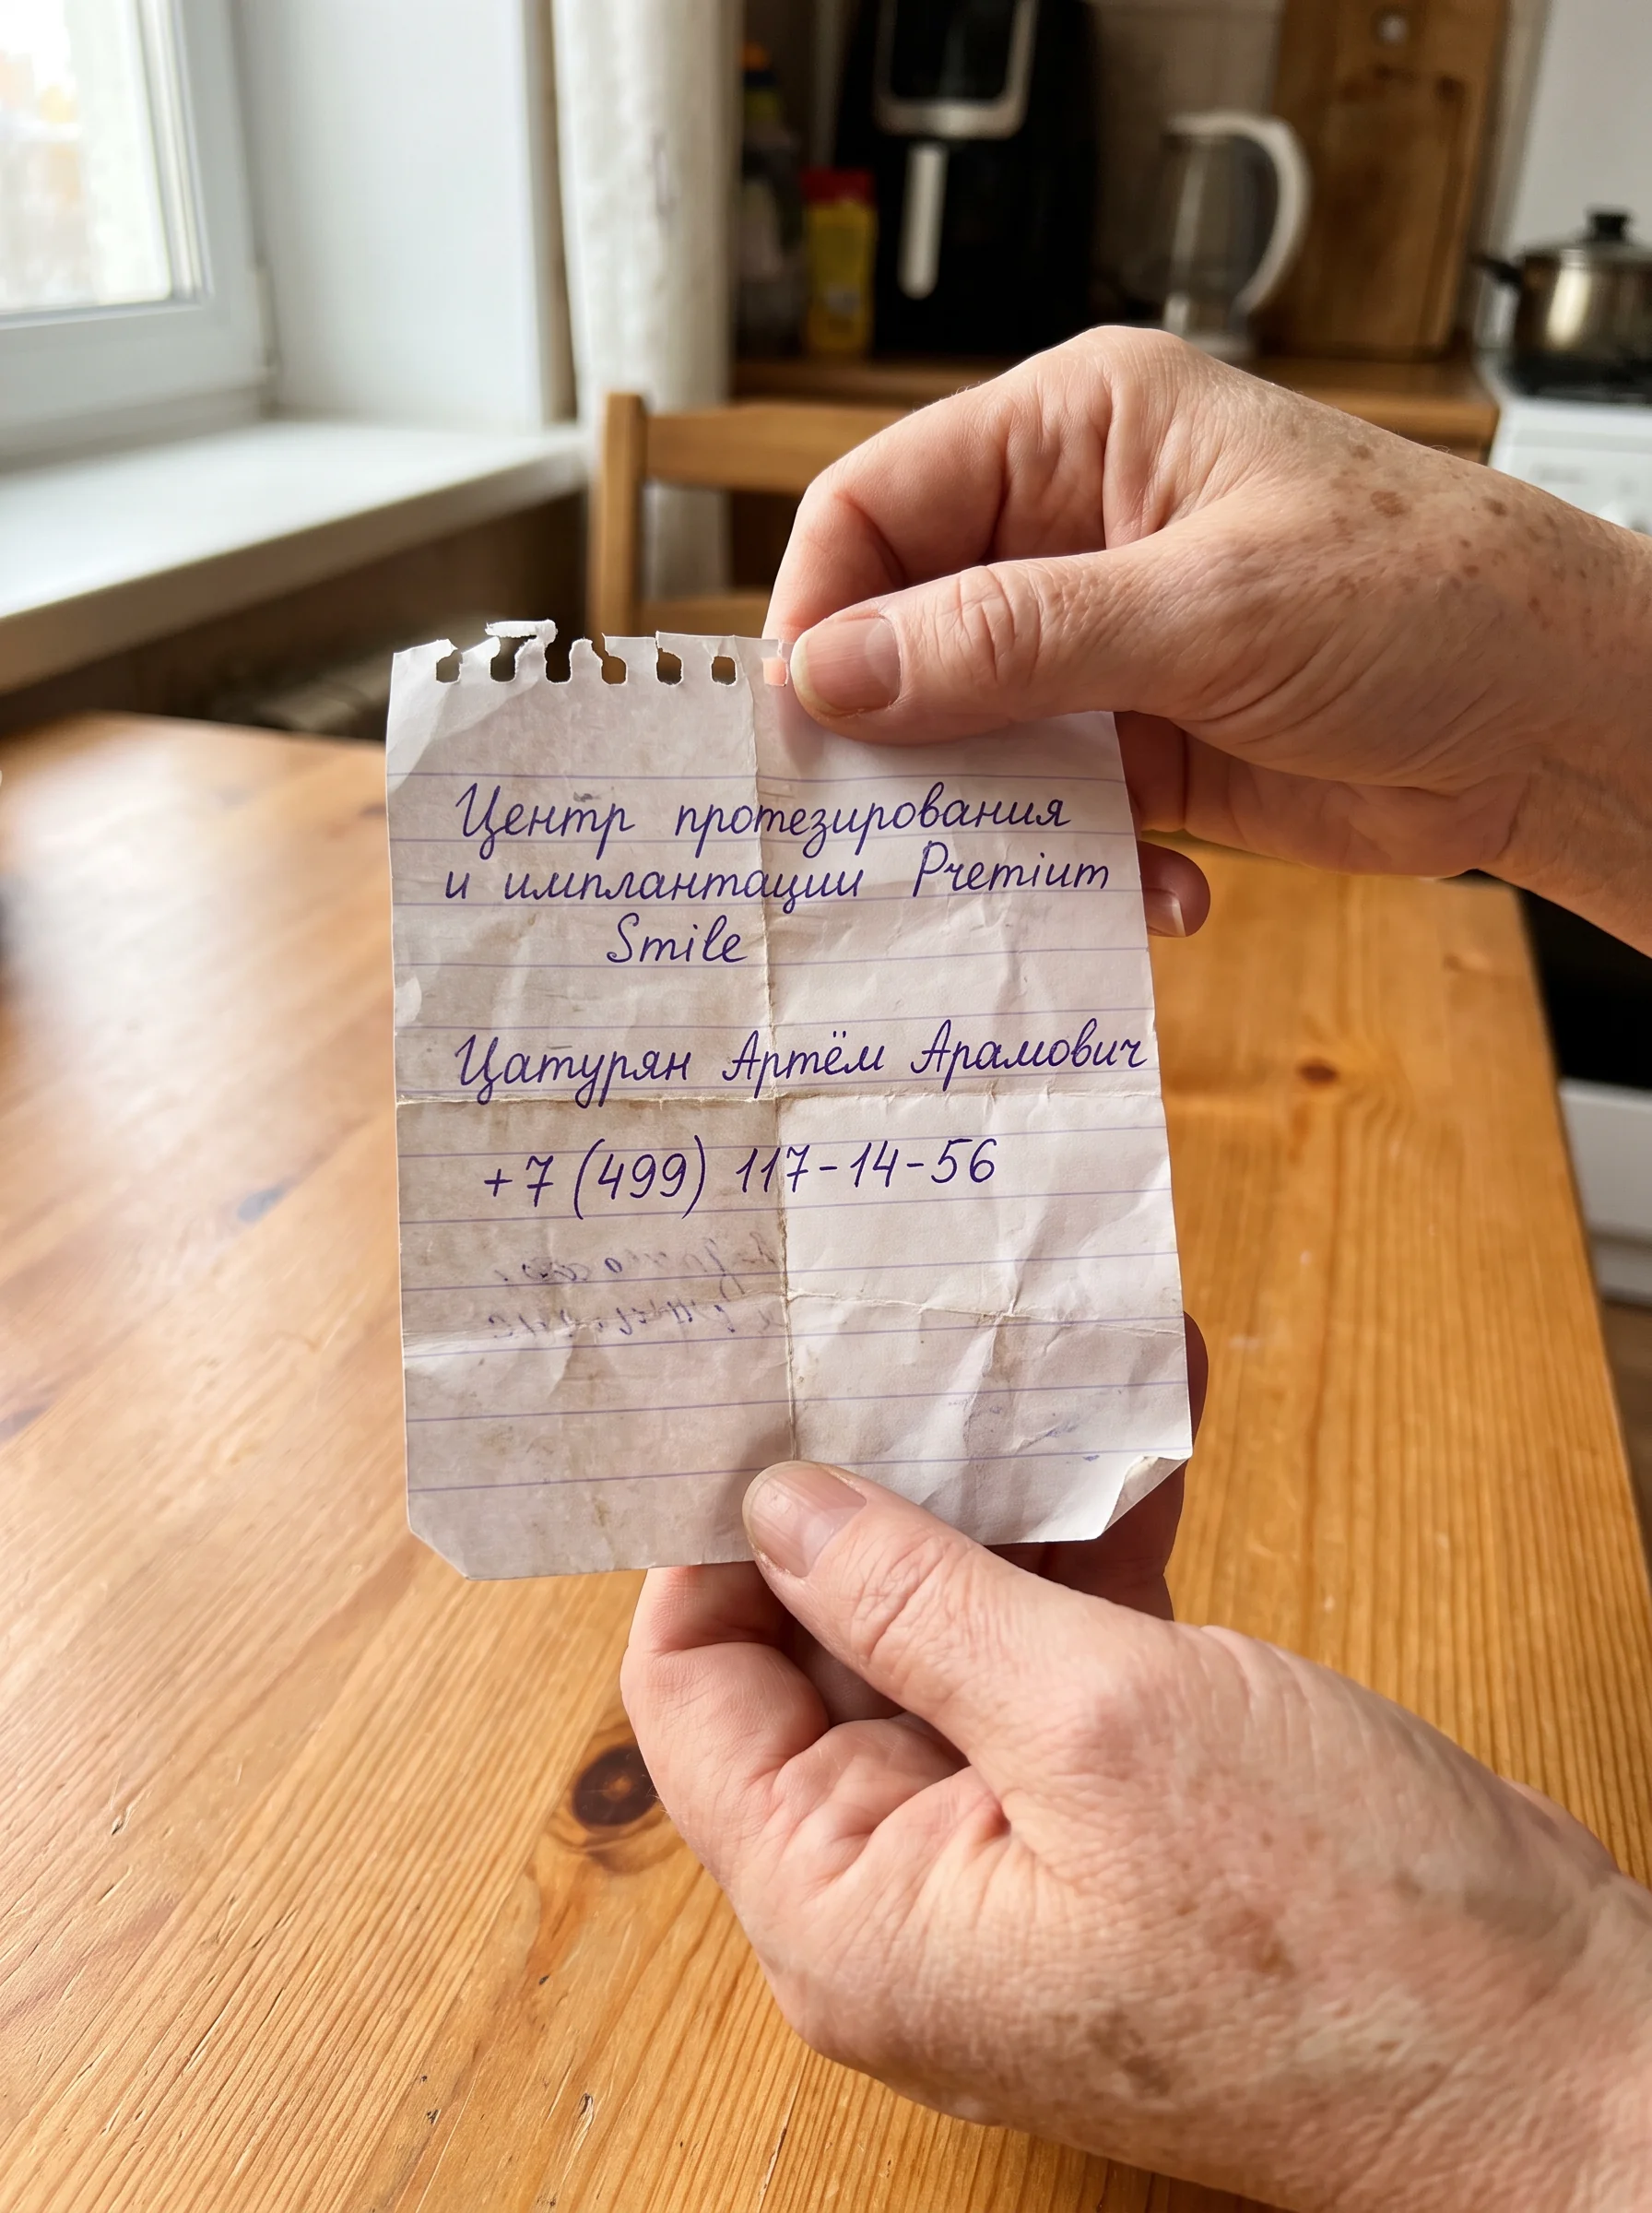 Центр протезирования
и имплантации Premium
Smile
Цатурян Артём Арамович
+7 (499) 117-14-56